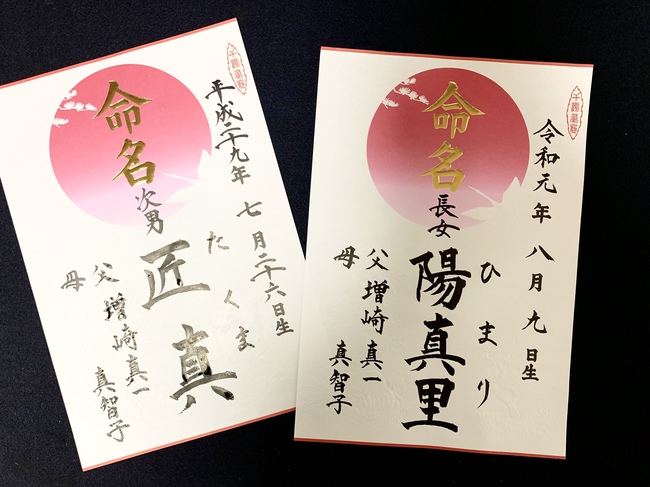 平成二十九年
七月二十六日生
命名
次男
匠真
たくま
父 増崎真一
母 真智子
令和元年 八月九日生
命名
長女
陽真里
ひまり
父 増崎真一
母 真智子